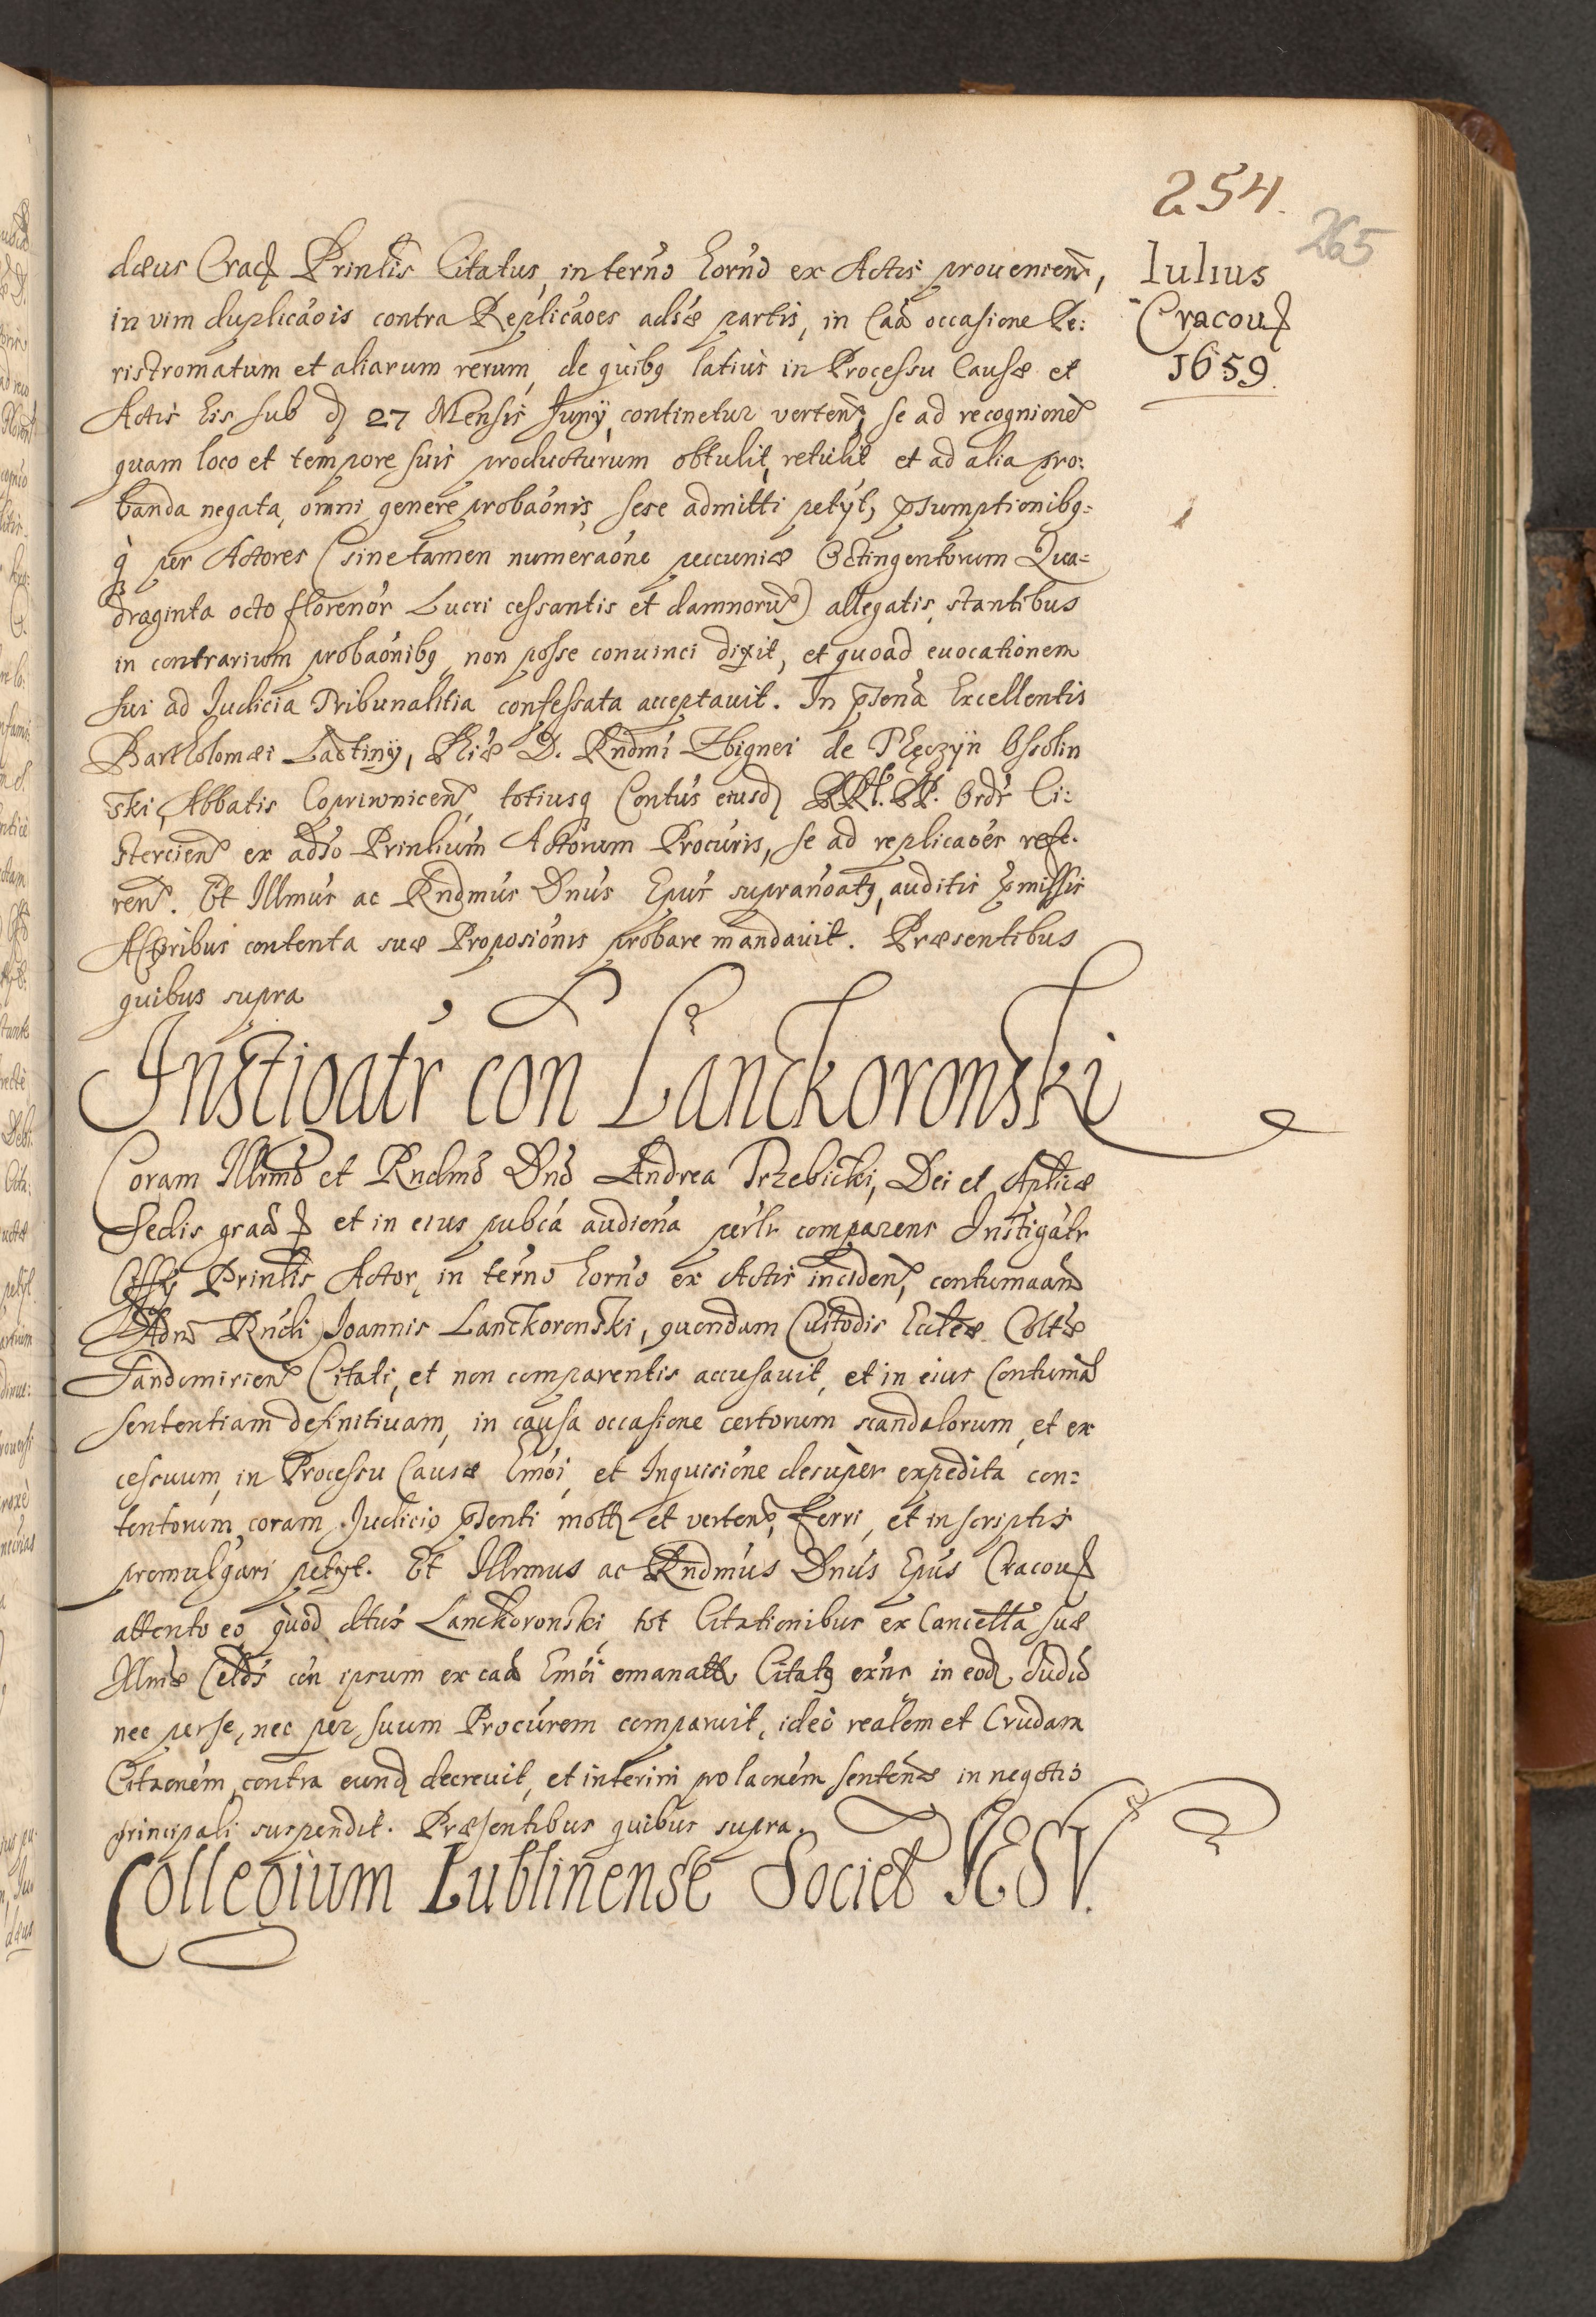 254.
265
Iulius
Cracou
1659.
dæus Crac Prinlis Citatus, in terno horno ex Actis prouenien,
in vim duplicaois contra Replicaoes adsæ partis, in Caa occasione Pe:
ristromatum et aliarum rerum, de quibq latius in Processu Causæ et
Actis his sub d 27 Mensis Junÿ, continetur verten, se ad recognione
quam loco et tempore suis producturum obtulit, retulit et ad alia pro:
banda negata, omni genere probaonis, sese admitti petÿt, psumptionibq
q per Actores (sine tamen numeraone peccuniæ Octingentorum Qua=
draginta octo florenor Lucri cessantis et damnoru) allegatis, stantibus
in contrarium probaonibq, non posse conuinci dixit, et quoad euocationem
sui ad Judicia Tribunalitia confessata acceptauit. In psena Excellentis
Bartholomæi Lactinÿ, D. Rndmi Zbignei de Thęczÿn Ossolin
ski, Abbatis Copriwnicen totiusq Contus eiusd Ordis Ci:
stercien ex adso Prinlium Actorum Procuris, se ad replicaoes refe.
ren. Et Illmus ac Rndmus Dnus Epus supranoatq, auditis pmissis
Actoribus contenta suæ Proposionis probare mandauit. Præsentibus
quibus supra
Instigatr con Lanckoronski
Coram Illrmo et Rndmo Dno Andrea Trzebicki, Dei et Aplicæ
Sedis graa et in eius publca audiena perlr comparens Instigatr
Prinlis Actor, in terno horno ex Actis inciden, contumaam
Adm Rndi Joannis Lanckoronski, quondam Custodis Eccleæ Coltæ
Sandomirien Citati, et non comparentis accusauit, et in eius Contuma
sententiam definitiuam, in causa occasione certorum scandalorum, et ex
cessuum, in Processu Causæ Emoi, et Inquisione desuper expedita con=
tentorum, coram Judicio psenti mott et verten, ferri, et in scriptis
promulgari petÿt. Et Illrmus ac Rndmus Dnus Epus Cracou
attento eo, quod dtus Lanckoronski, tot Citationibus ex Cancella suæ
Illmæ Celds con ipsum ex caa Emoi emanatt Citatq exns in eod Judio
nec per se, nec per suum Procurem comparuit, ideo realem et Crudam
Citaonem, contra eund decreuit, et interim prolaonem sentenæ in negotio
principali suspendit. Præsentibus quibus supra.
Collegium Lublinense Societ JESV.